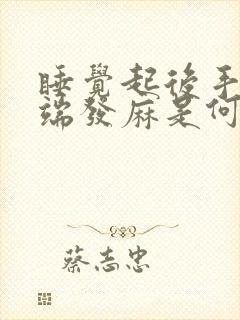 睡覺起後手
端發麻是何
蔡志忠